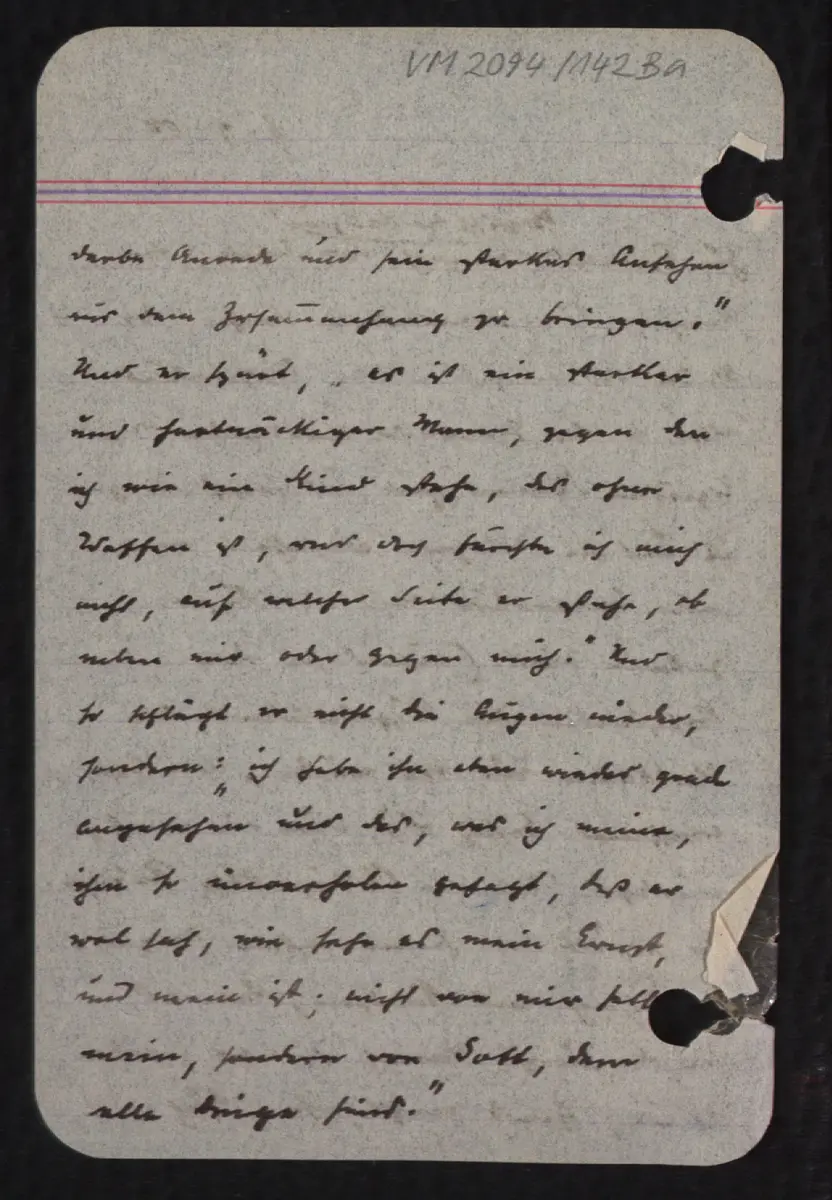 VM 2094/142Ba
derbe Anrede und sein starkes Ansehen
aus dem Zusam̅enhang zu bringen."
Und er spürt, „es ist ein starker
und hartnäckiger Mann, gegen den
ich wie ein Kind stehe, das ohne
Waffen ist, und doch fürchte ich mich
nicht, auf welcher Seite er stehe, ob
neben mir oder gegen mich." Und
so schlägt er nicht die Augen nieder,
sondern: „ich habe ihn eben wieder grade
angesehen und das, was ich meine,
ihm so unverholen gesagt, daß er
wol sah, wie sehr es mein Ernst,
und mein ist; nicht von mir selbst
mein, sondern von Gott, dem
alle Dinge sind."